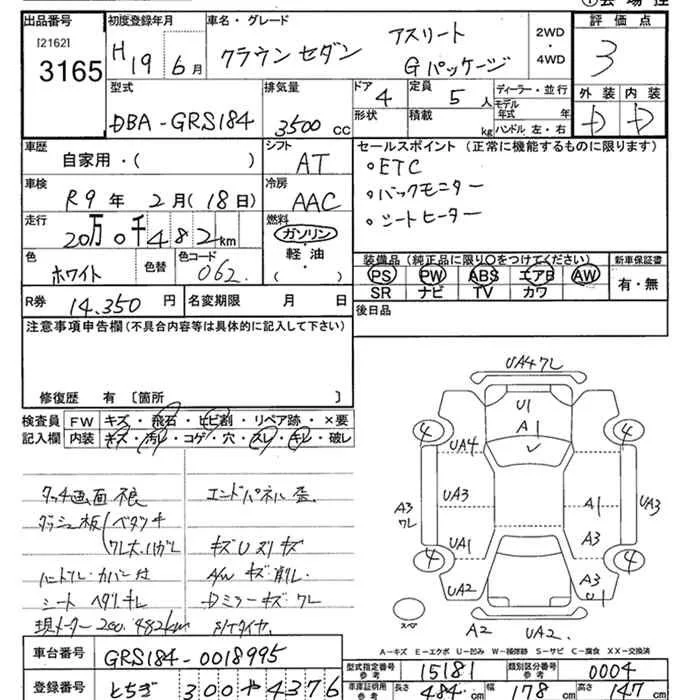 出品番号 初度登録年月 車名・グレード 2WD・4WD 評価点
[2162]
3165 H19 6月 クラウンセダン アスリート Gパッケージ 3
型式 排気量 ドア 4 定員 5人 ディーラー・並行 外装 内装
DBA-GRS184 3500cc 形状 積載 kg モデル年式 年 D D
ハンドル 左・右
車歴 シフト セールスポイント(正常に機能するものに限ります)
自家用・( ) AT ◦ETC
車検 冷房 ◦バックモニター
R9年2月(18日) AAC ◦シートヒーター
走行 燃料
20万0千482km ガソリン・軽油・( )
色 色替 色コード 装備品(純正品に限り○をつけてください) 新車保証書
ホワイト 062 PS PW ABS エアB AW 有・無
SR ナビ TV カワ
R券 14.350円 名変期限 月 日 後日品
注意事項申告欄(不具合内容等は具体的に記入して下さい)
修復歴 有 〔箇所 〕
検査員 FW キズ・飛石・ヒビ割・リペア跡・×要
記入欄 内装 キズ・汚レ・コゲ・穴・スレ・キレ・破レ
タッチ画面 不良 エンドパネル 歪.
ダッシュ板 ベタツキ
ワレ大.ハガレ キズUスリキズ
ハンドル・カバー付 A/W キズ・削レ・
シート ヘタリ キレ Dミラーキズ・ワレ
現メーター200.482km
UA4ワレ
U1
A1
4 4
UA4
UA3 A1 UA3
A3ワレ
UA1 A3
4 4
UA2 A3 U1
スペア
A2 UA2.
A−キズ E−エクボ U−凹ミ W−補修跡 S−サビ C−腐食 XX−交換済
車台番号 GRS184-0018995 型式指定番号 参考 15181 類別区分番号 参考 0004
登録番号 とちぎ 300 や 4376 車庫証明用 参考 長さ 484cm 幅 178cm 高さ 147cm